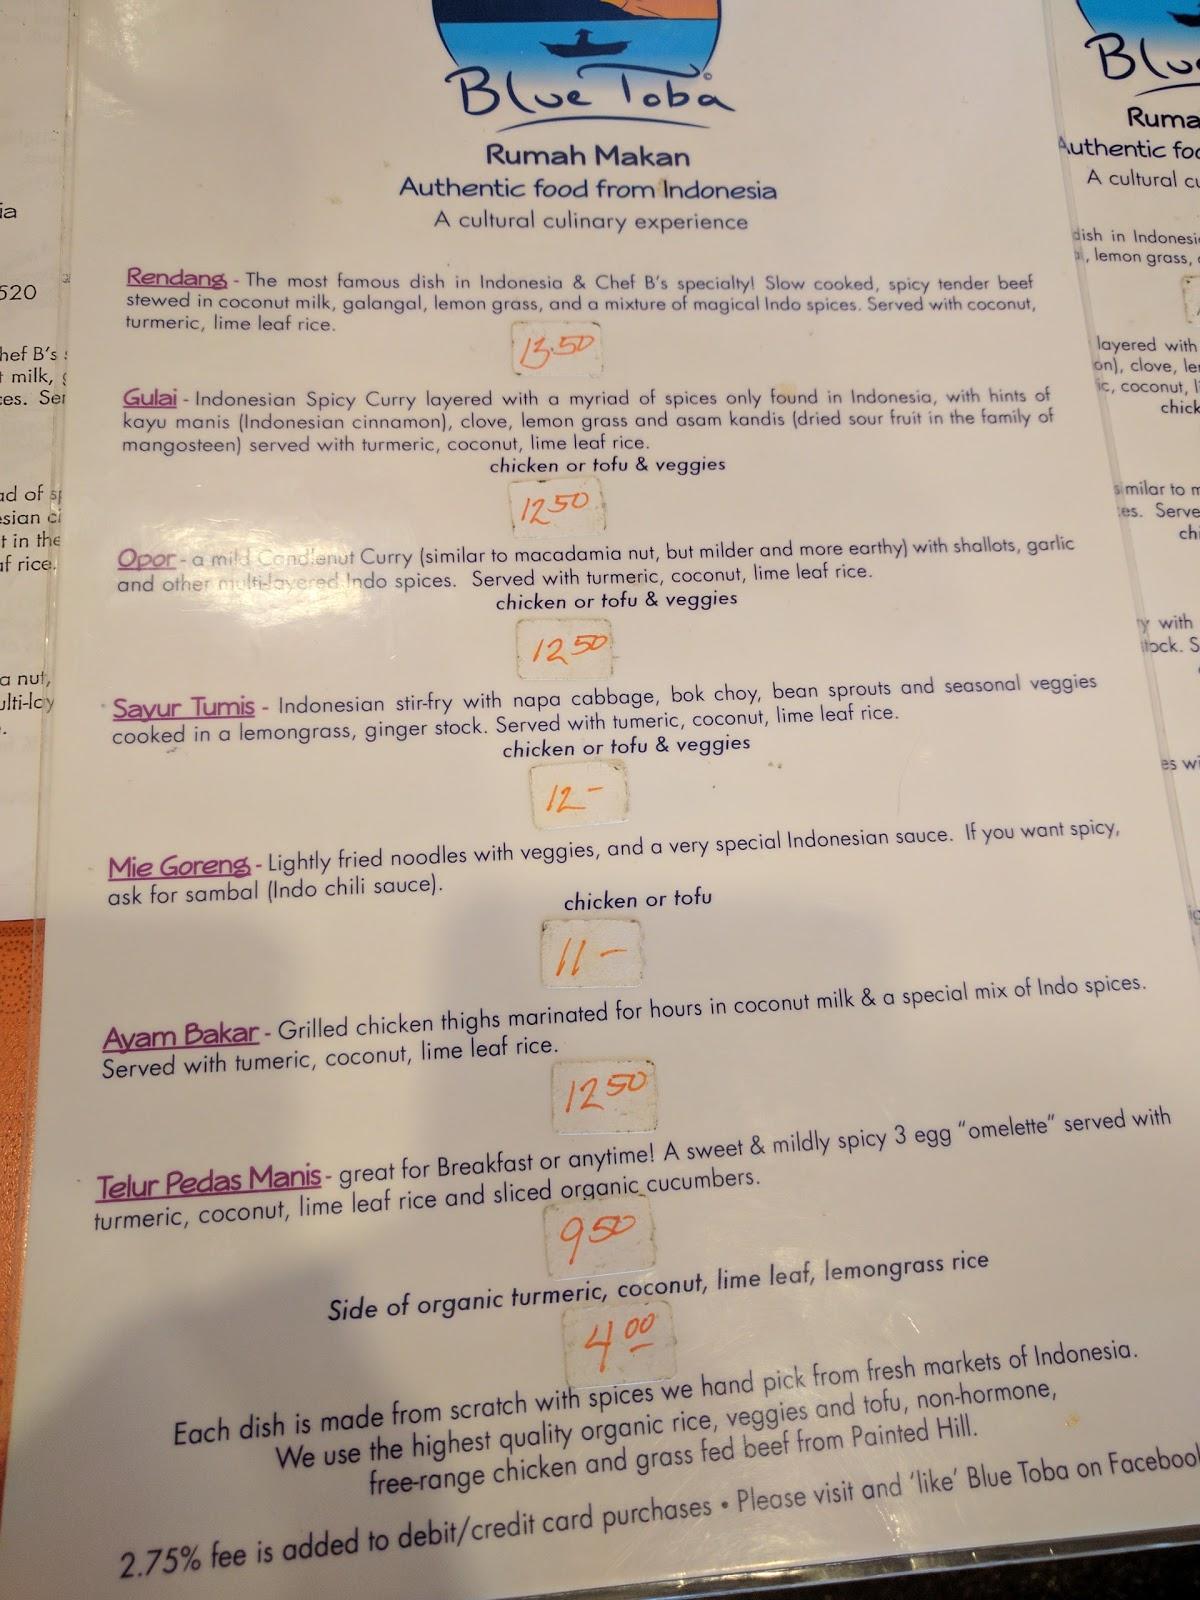 Blue Toba
Rumah Makan
Authentic food from Indonesia
A cultural culinary experience
Rendang - The most famous dish in Indonesia & Chef B's specialty! Slow cooked, spicy tender beef
stewed in coconut milk, galangal, lemon grass, and a mixture of magical Indo spices. Served with coconut,
turmeric, lime leaf rice.
13.50
Gulai - Indonesian Spicy Curry layered with a myriad of spices only found in Indonesia, with hints of
kayu manis (Indonesian cinnamon), clove, lemon grass and asam kandis (dried sour fruit in the family of
mangosteen) served with turmeric, coconut, lime leaf rice.
chicken or tofu & veggies
12 50
Opor - a mild Candlenut Curry (similar to macadamia nut, but milder and more earthy) with shallots, garlic
and other multi-layered Indo spices. Served with turmeric, coconut, lime leaf rice.
chicken or tofu & veggies
12 50
Sayur Tumis - Indonesian stir-fry with napa cabbage, bok choy, bean sprouts and seasonal veggies
cooked in a lemongrass, ginger stock. Served with tumeric, coconut, lime leaf rice.
chicken or tofu & veggies
12 -
Mie Goreng - Lightly fried noodles with veggies, and a very special Indonesian sauce. If you want spicy,
ask for sambal (Indo chili sauce).
chicken or tofu
11 -
Ayam Bakar - Grilled chicken thighs marinated for hours in coconut milk & a special mix of Indo spices.
Served with tumeric, coconut, lime leaf rice.
12 50
Telur Pedas Manis - great for Breakfast or anytime! A sweet & mildly spicy 3 egg "omelette" served with
turmeric, coconut, lime leaf rice and sliced organic cucumbers.
9 50
Side of organic turmeric, coconut, lime leaf, lemongrass rice
4 00
Each dish is made from scratch with spices we hand pick from fresh markets of Indonesia.
We use the highest quality organic rice, veggies and tofu, non-hormone,
free-range chicken and grass fed beef from Painted Hill.
2.75% fee is added to debit/credit card purchases • Please visit and 'like' Blue Toba on Facebook